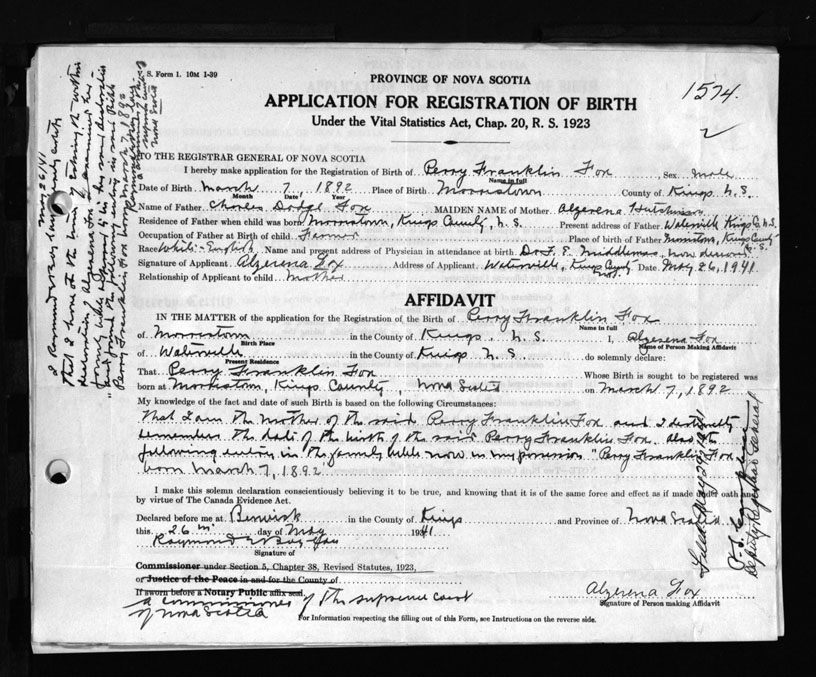 S. Form 1. 10M 1-39
PROVINCE OF NOVA SCOTIA
1574.
APPLICATION FOR REGISTRATION OF BIRTH
2
Under the Vital Statistics Act, Chap. 20, R. S. 1923
TO THE REGISTRAR GENERAL OF NOVA SCOTIA
I hereby make application for the Registration of Birth of Perry Franklin Fox Sex male
Name in full
Date of Birth March 7, 1892 Place of Birth Morristown County of Kings N.S.
Month Date Year
Name of Father Charles Dodge Fox MAIDEN NAME of Mother Algerena Hutchinson
Residence of Father when child was born Morristown, Kings County, N.S. Present address of Father Waterville Kings Co. N.S.
Occupation of Father at Birth of child Farmer Place of birth of Father Morristown, Kings County N.S.
Race White-English Name and present address of Physician in attendance at birth Dr. F. E. Middlemas, now deceased
Signature of Applicant Algerena Fox Address of Applicant Waterville, Kings County N.S. Date May 26, 1941
Relationship of Applicant to child Mother
AFFIDAVIT
IN THE MATTER of the application for the Registration of the Birth of Perry Franklin Fox
Name in full
of Morristown in the County of Kings, N.S. I, Algerena Fox
Birth Place Name of Person Making Affidavit
of Waterville in the County of Kings N.S. do solemnly declare:
Present Residence
That Perry Franklin Fox Whose Birth is sought to be registered was
born at Morristown, Kings County, Nova Scotia on March 7, 1892
My knowledge of the fact and date of such Birth is based on the following Circumstances:
That I am the mother of the said Perry Franklin Fox and I distinctly
remember the date of the birth of the said Perry Franklin Fox. Also the
following entry in the family bible now in my possession "Perry Franklin Fox
born March 7, 1892
I make this solemn declaration conscientiously believing it to be true, and knowing that it is of the same force and effect as if made under oath and
by virtue of The Canada Evidence Act.
Declared before me at Berwick in the County of Kings and Province of Nova Scotia
this 26 day of May 1941
Raymond
Signature of
Commissioner under Section 5, Chapter 38, Revised Statutes, 1923,
or Justice of the Peace in and for the County of
If sworn before a Notary Public affix seal.
Algerena Fox
a commissioner of the supreme court
Signature of Person making Affidavit
of Nova Scotia
For Information respecting the filling out of this Form, see Instructions on the reverse side.
May 26/41
that I have at the time of taking the within
declaration of Algerena Fox examined the
Perry Franklin Fox born March 7, 1892
Nova Scotia
Filed May 29, 1941
Deputy Registrar General